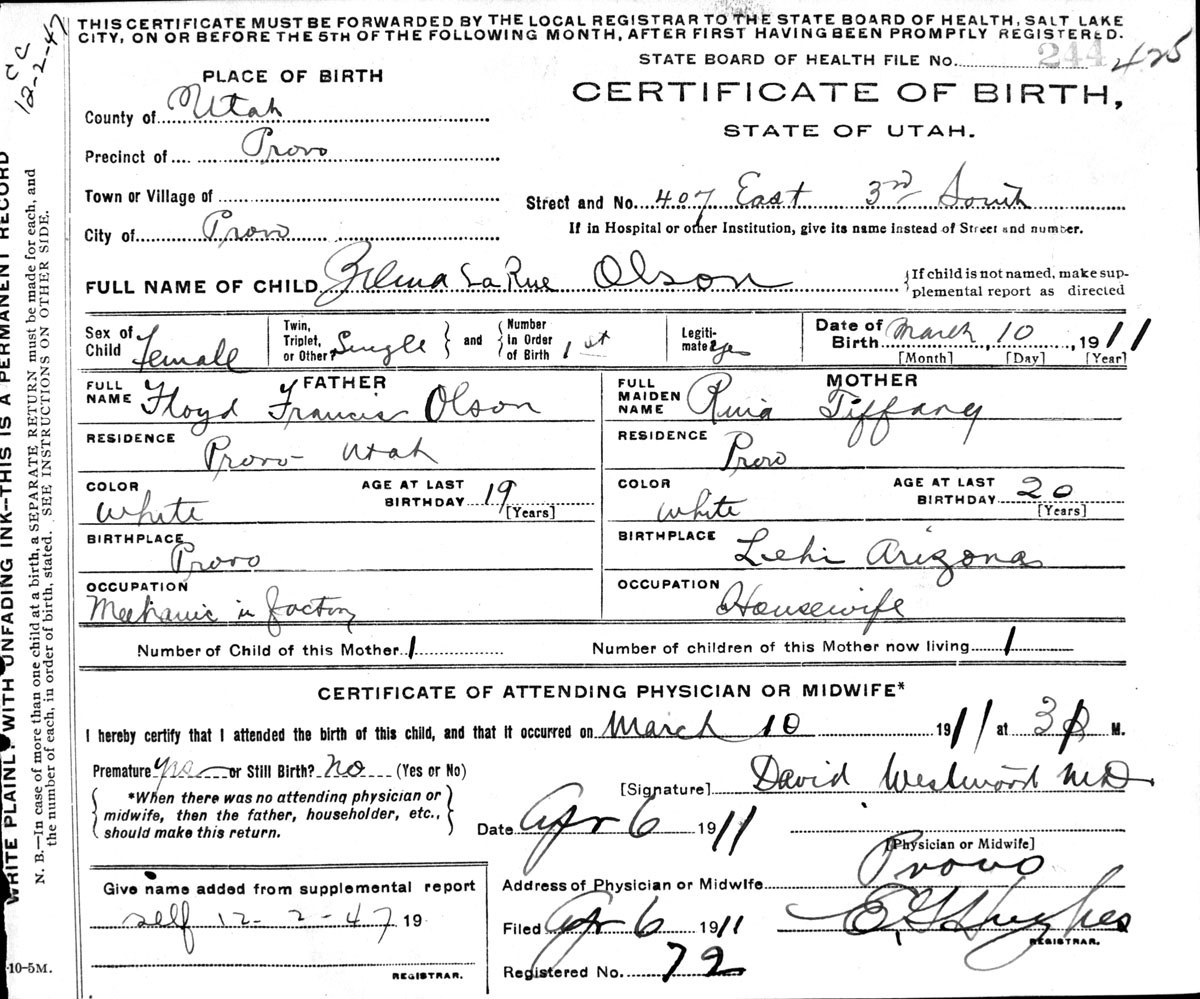 THIS CERTIFICATE MUST BE FORWARDED BY THE LOCAL REGISTRAR TO THE STATE BOARD OF HEALTH, SALT LAKE
CITY, ON OR BEFORE THE 5TH OF THE FOLLOWING MONTH, AFTER FIRST HAVING BEEN PROMPTLY REGISTERED.
CC
12-2-47
STATE BOARD OF HEALTH FILE No. 244 425
PLACE OF BIRTH
CERTIFICATE OF BIRTH,
STATE OF UTAH.
County of Utah
Precinct of Provo
Town or Village of
Street and No. 407 East 3rd South
City of Provo
If in Hospital or other Institution, give its name instead of Street and number.
FULL NAME OF CHILD Zelma LaRue Olson
{If child is not named, make sup-
plemental report as directed
Sex of Child female
Twin, Triplet, or Other Single } and { Number In Order of Birth 1st
Legiti-mate? yes
Date of Birth March 10, 1911
[Month] [Day] [Year]
FATHER
FULL NAME Floyd Francis Olson
RESIDENCE Provo Utah
COLOR White
AGE AT LAST BIRTHDAY 19
[Years]
BIRTHPLACE Provo
OCCUPATION
Mechanic in factory
MOTHER
FULL MAIDEN NAME Tiffany
RESIDENCE Provo
COLOR White
AGE AT LAST BIRTHDAY 20
[Years]
BIRTHPLACE Lehi Arizona
OCCUPATION Housewife
Number of Child of this Mother 1
Number of children of this Mother now living 1
CERTIFICATE OF ATTENDING PHYSICIAN OR MIDWIFE*
I hereby certify that I attended the birth of this child, and that it occurred on March 10 1911 at 3 P M.
Premature yes or Still Birth? no (Yes or No)
[Signature] David Westwood MD
*When there was no attending physician or
midwife, then the father, householder, etc.,
should make this return.
Date Apr 6 1911
[Physician or Midwife]
Address of Physician or Midwife Provo
Give name added from supplemental report
self 12-2-47 19
REGISTRAR.
Filed Apr 6 1911 Hughes
REGISTRAR.
Registered No. 72
WRITE PLAINLY WITH UNFADING INK—THIS IS A PERMANENT RECORD
N. B.—In case of more than one child at a birth, a SEPARATE RETURN must be made for each, and
the number of each, in order of birth, stated. SEE INSTRUCTIONS ON OTHER SIDE.
10-5M.